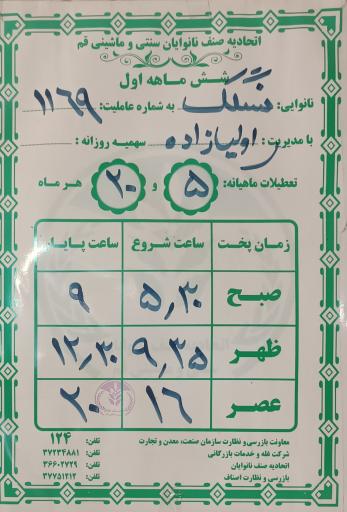 اتحادیه صنف نانوایان سنتی و ماشینی قم
شش ماهه اول
نانوایی: سنگک به شماره عاملیت: ۱۱۶۹
با مدیریت: اولیازاده سهمیه روزانه:
تعطیلات ماهیانه: ۵ و ۲۰ هر ماه
زمان پخت ساعت شروع ساعت پایان
صبح ۵٫۳۰ ۹
ظهر ۹٫۳۵ ۱۲٫۳۰
عصر ۱۶ ۲۰
معاونت بازرسی و نظارت سازمان صنعت، معدن و تجارت تلفن: ۱۲۴
شرکت غله و خدمات بازرگانی تلفن: ۳۷۲۳۴۸۸۱
اتحادیه صنف نانوایان تلفن: ۳۶۶۰۲۷۲۹
بازرسی و نظارت اصناف تلفن: ۳۷۷۵۱۲۱۲